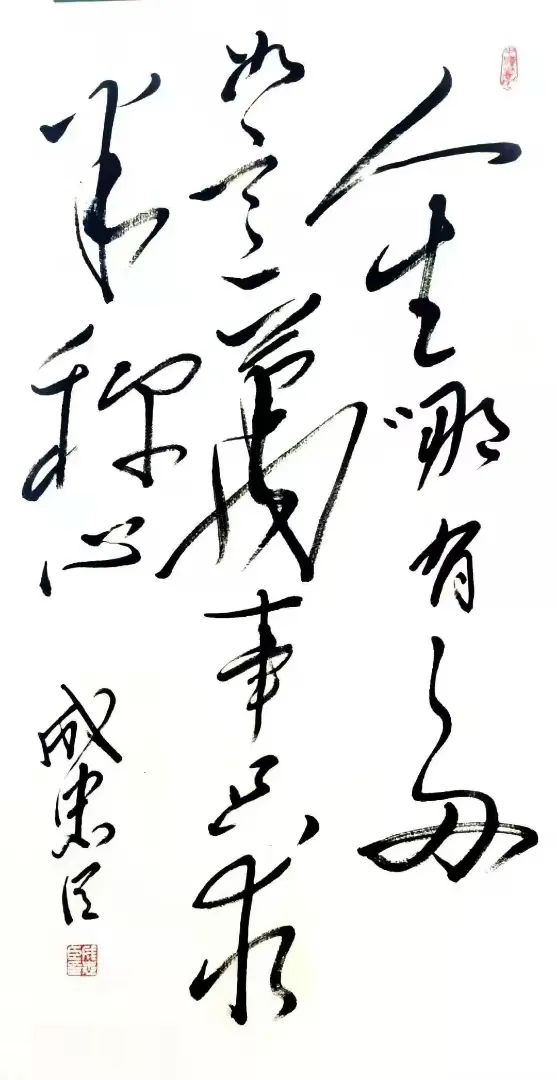 人生哪有多
如意萬事只求
半称心
成忠臣